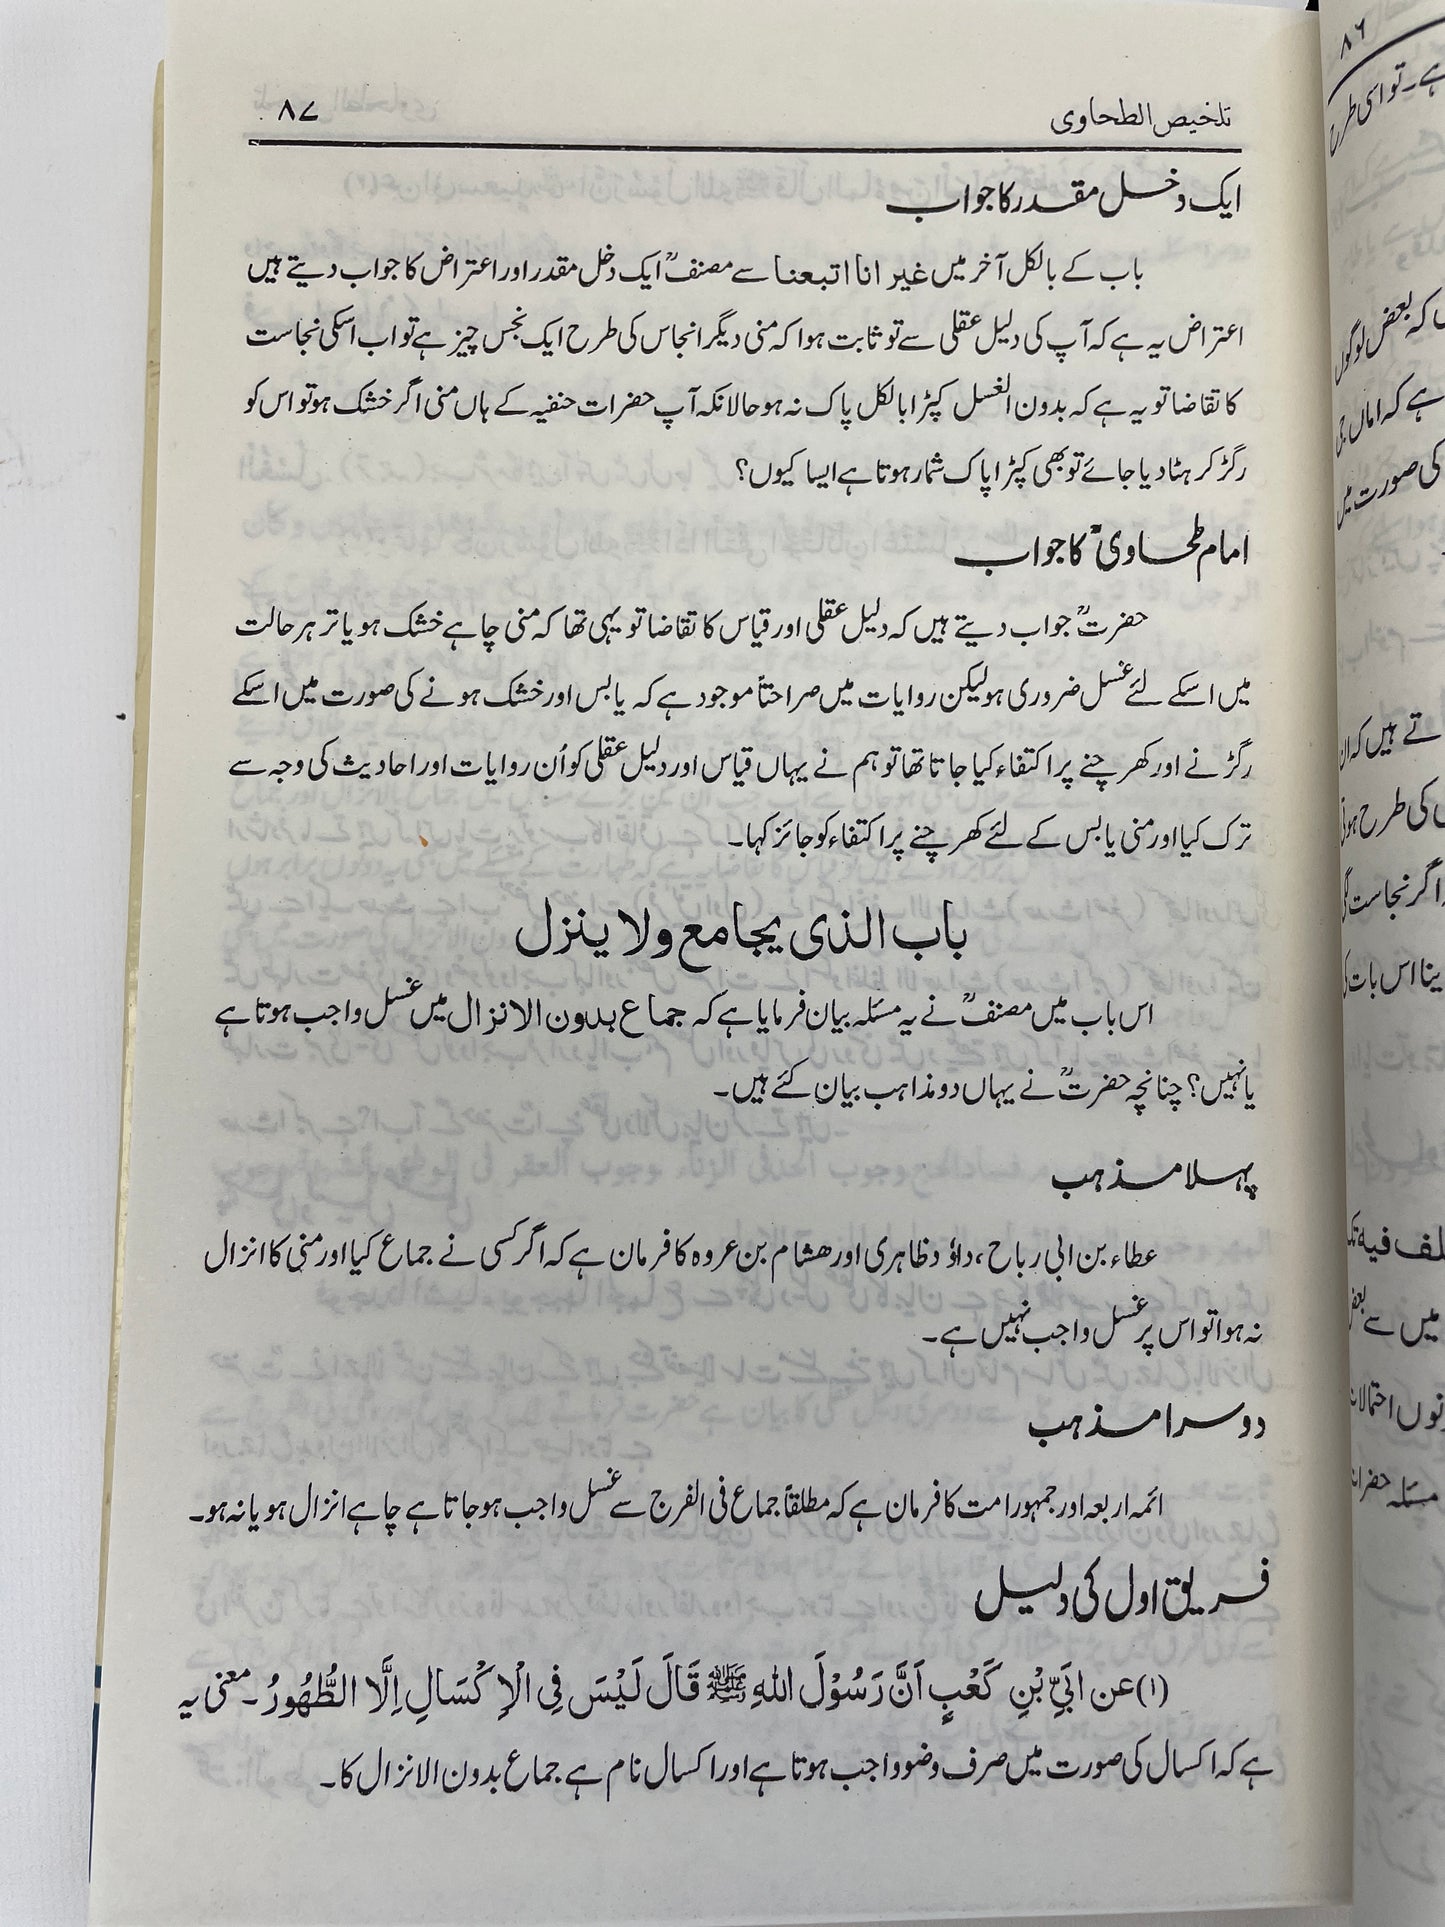 تلخیص الطحاوی ۸۷
ایک دخل مقدر کا جواب
باب کے بالکل آخر میں غیر انا اتبعنا سے مصنفؒ ایک دخل مقدر اور اعتراض کا جواب دیتے ہیں
اعتراض یہ ہے کہ آپ کی دلیل عقلی سے تو ثابت ہوا کہ منی دیگر انجاس کی طرح ایک نجس چیز ہے تو اب اسکی نجاست
کا تقاضا تو یہ ہے کہ بدون الغسل کپڑا بالکل پاک نہ ہو حالانکہ آپ حضرات حنفیہ کے ہاں منی اگر خشک ہو تو اس کو
رگڑ کر ہٹا دیا جائے تو بھی کپڑا پاک شمار ہوتا ہے ایسا کیوں؟
امام طحاویؒ کا جواب
حضرتؒ جواب دیتے ہیں کہ دلیل عقلی اور قیاس کا تقاضا تو یہی تھا کہ منی چاہے خشک ہو یا تر ہر حالت
میں اسکے لئے غسل ضروری ہو لیکن روایات میں صراحتاً موجود ہے کہ یابس اور خشک ہونے کی صورت میں اسکے
رگڑنے اور کھرچنے پر اکتفاء کیا جاتا تھا تو ہم نے یہاں قیاس اور دلیل عقلی کو اُن روایات اور احادیث کی وجہ سے
ترک کیا اور منی یابس کے لئے کھرچنے پر اکتفاء کو جائز کہا۔
باب الذی یجامع ولا ینزل
اس باب میں مصنفؒ نے یہ مسئلہ بیان فرمایا ہے کہ جماع بدون الانزال میں غسل واجب ہوتا ہے
یا نہیں؟ چنانچہ حضرتؒ نے یہاں دو مذاہب بیان کئے ہیں۔
پہلا مذہب
عطاء بن ابی رباح، داؤد ظاہری اور ھشام بن عروہ کا فرمان ہے کہ اگر کسی نے جماع کیا اور منی کا انزال
نہ ہوا تو اس پر غسل واجب نہیں ہے۔
دوسرا مذہب
ائمہ اربعہ اور جمہور امت کا فرمان ہے کہ مطلقاً جماع فی الفرج سے غسل واجب ہو جاتا ہے چاہے انزال ہو یا نہ ہو۔
فریق اول کی دلیل
(۱) عن اَبَیِّ بْنِ کَعْبٍ اَنَّ رَسُوْلَ اللهِ ﷺ قَالَ لَیْسَ فِی الْاِکْسَالِ اِلَّا الطُّهُورُ۔ معنی یہ
ہے کہ اکسال کی صورت میں صرف وضو واجب ہوتا ہے اور اکسال نام ہے جماع بدون الانزال کا۔
۸۶
ہے۔ تو اسی طرح
کہ بعض لوگوں
ہے کہ اماں جی
کی صورت میں
تے ہیں کہ ان
کی طرح ہوتی
اگر نجاست
ینا اس بات
میں سے بعض
مسئلہ حضرات